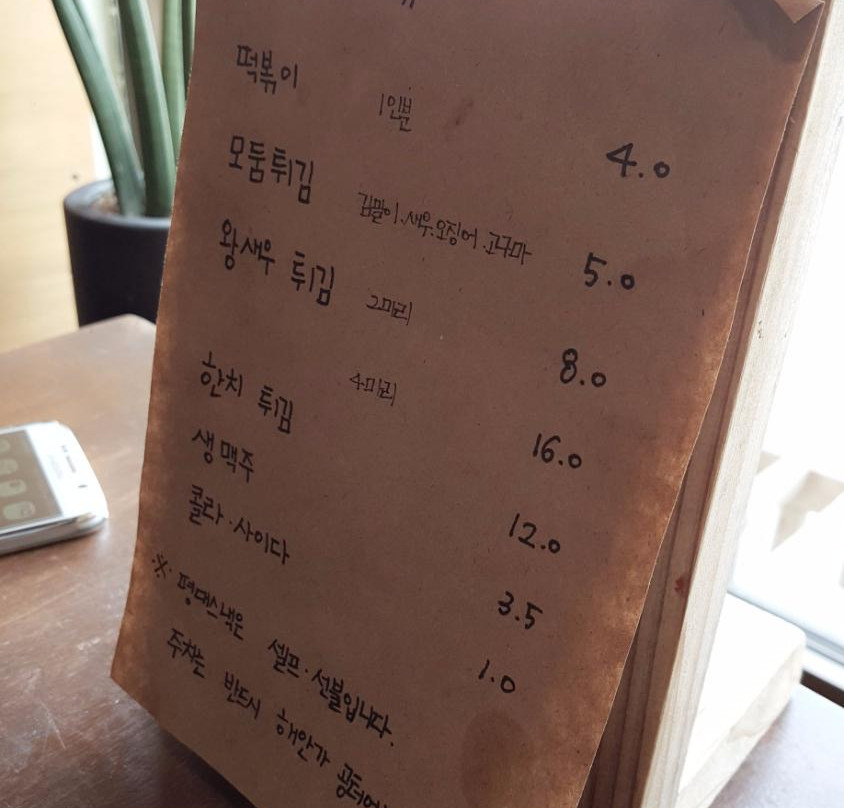 떡볶이 1인분 4.0
모둠튀김 김말이.새우.오징어.고구마 5.0
왕새우 튀김 2마리 8.0
4마리 16.0
한치 튀김 12.0
생맥주 3.5
콜라·사이다 1.0
※ 평대스낵은 셀프·선불입니다.
주차는 반드시 해안가